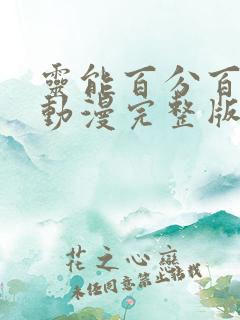 靈能百分百
動漫完整版
花之心戀
未任同意禁止轉載